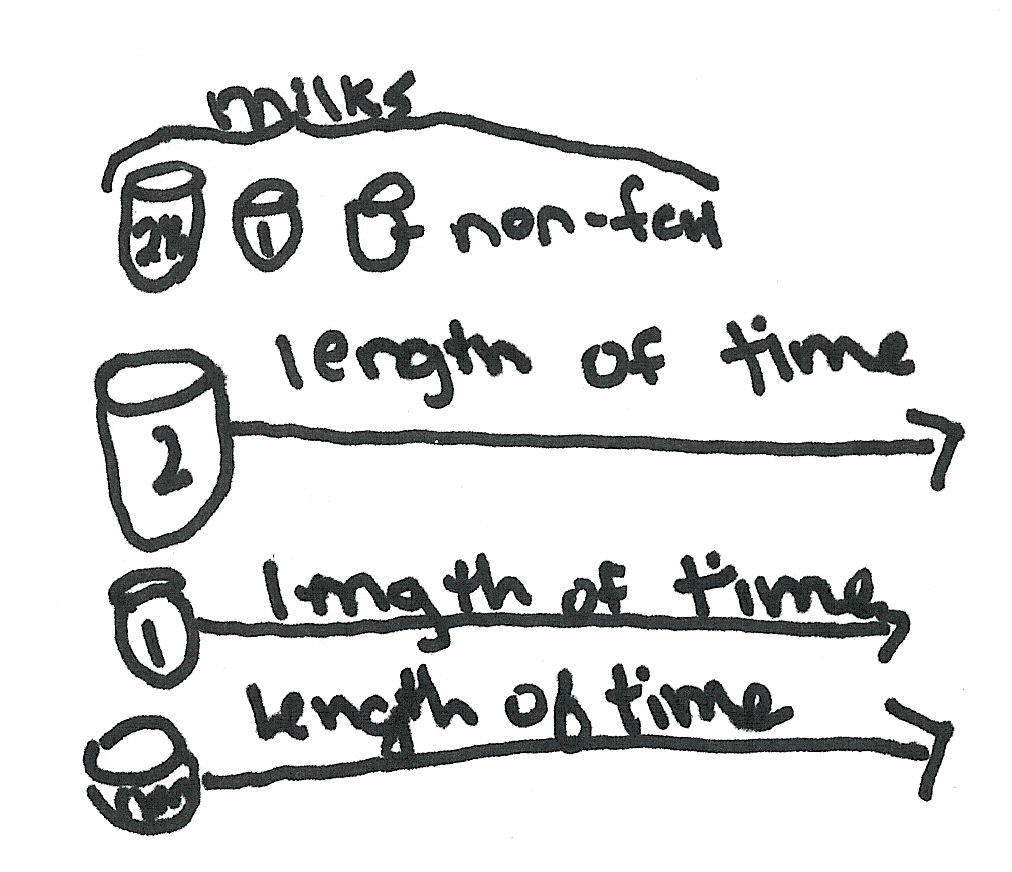 milks
2% 1 non-fat
length of time
2
length of time
1
length of time
non